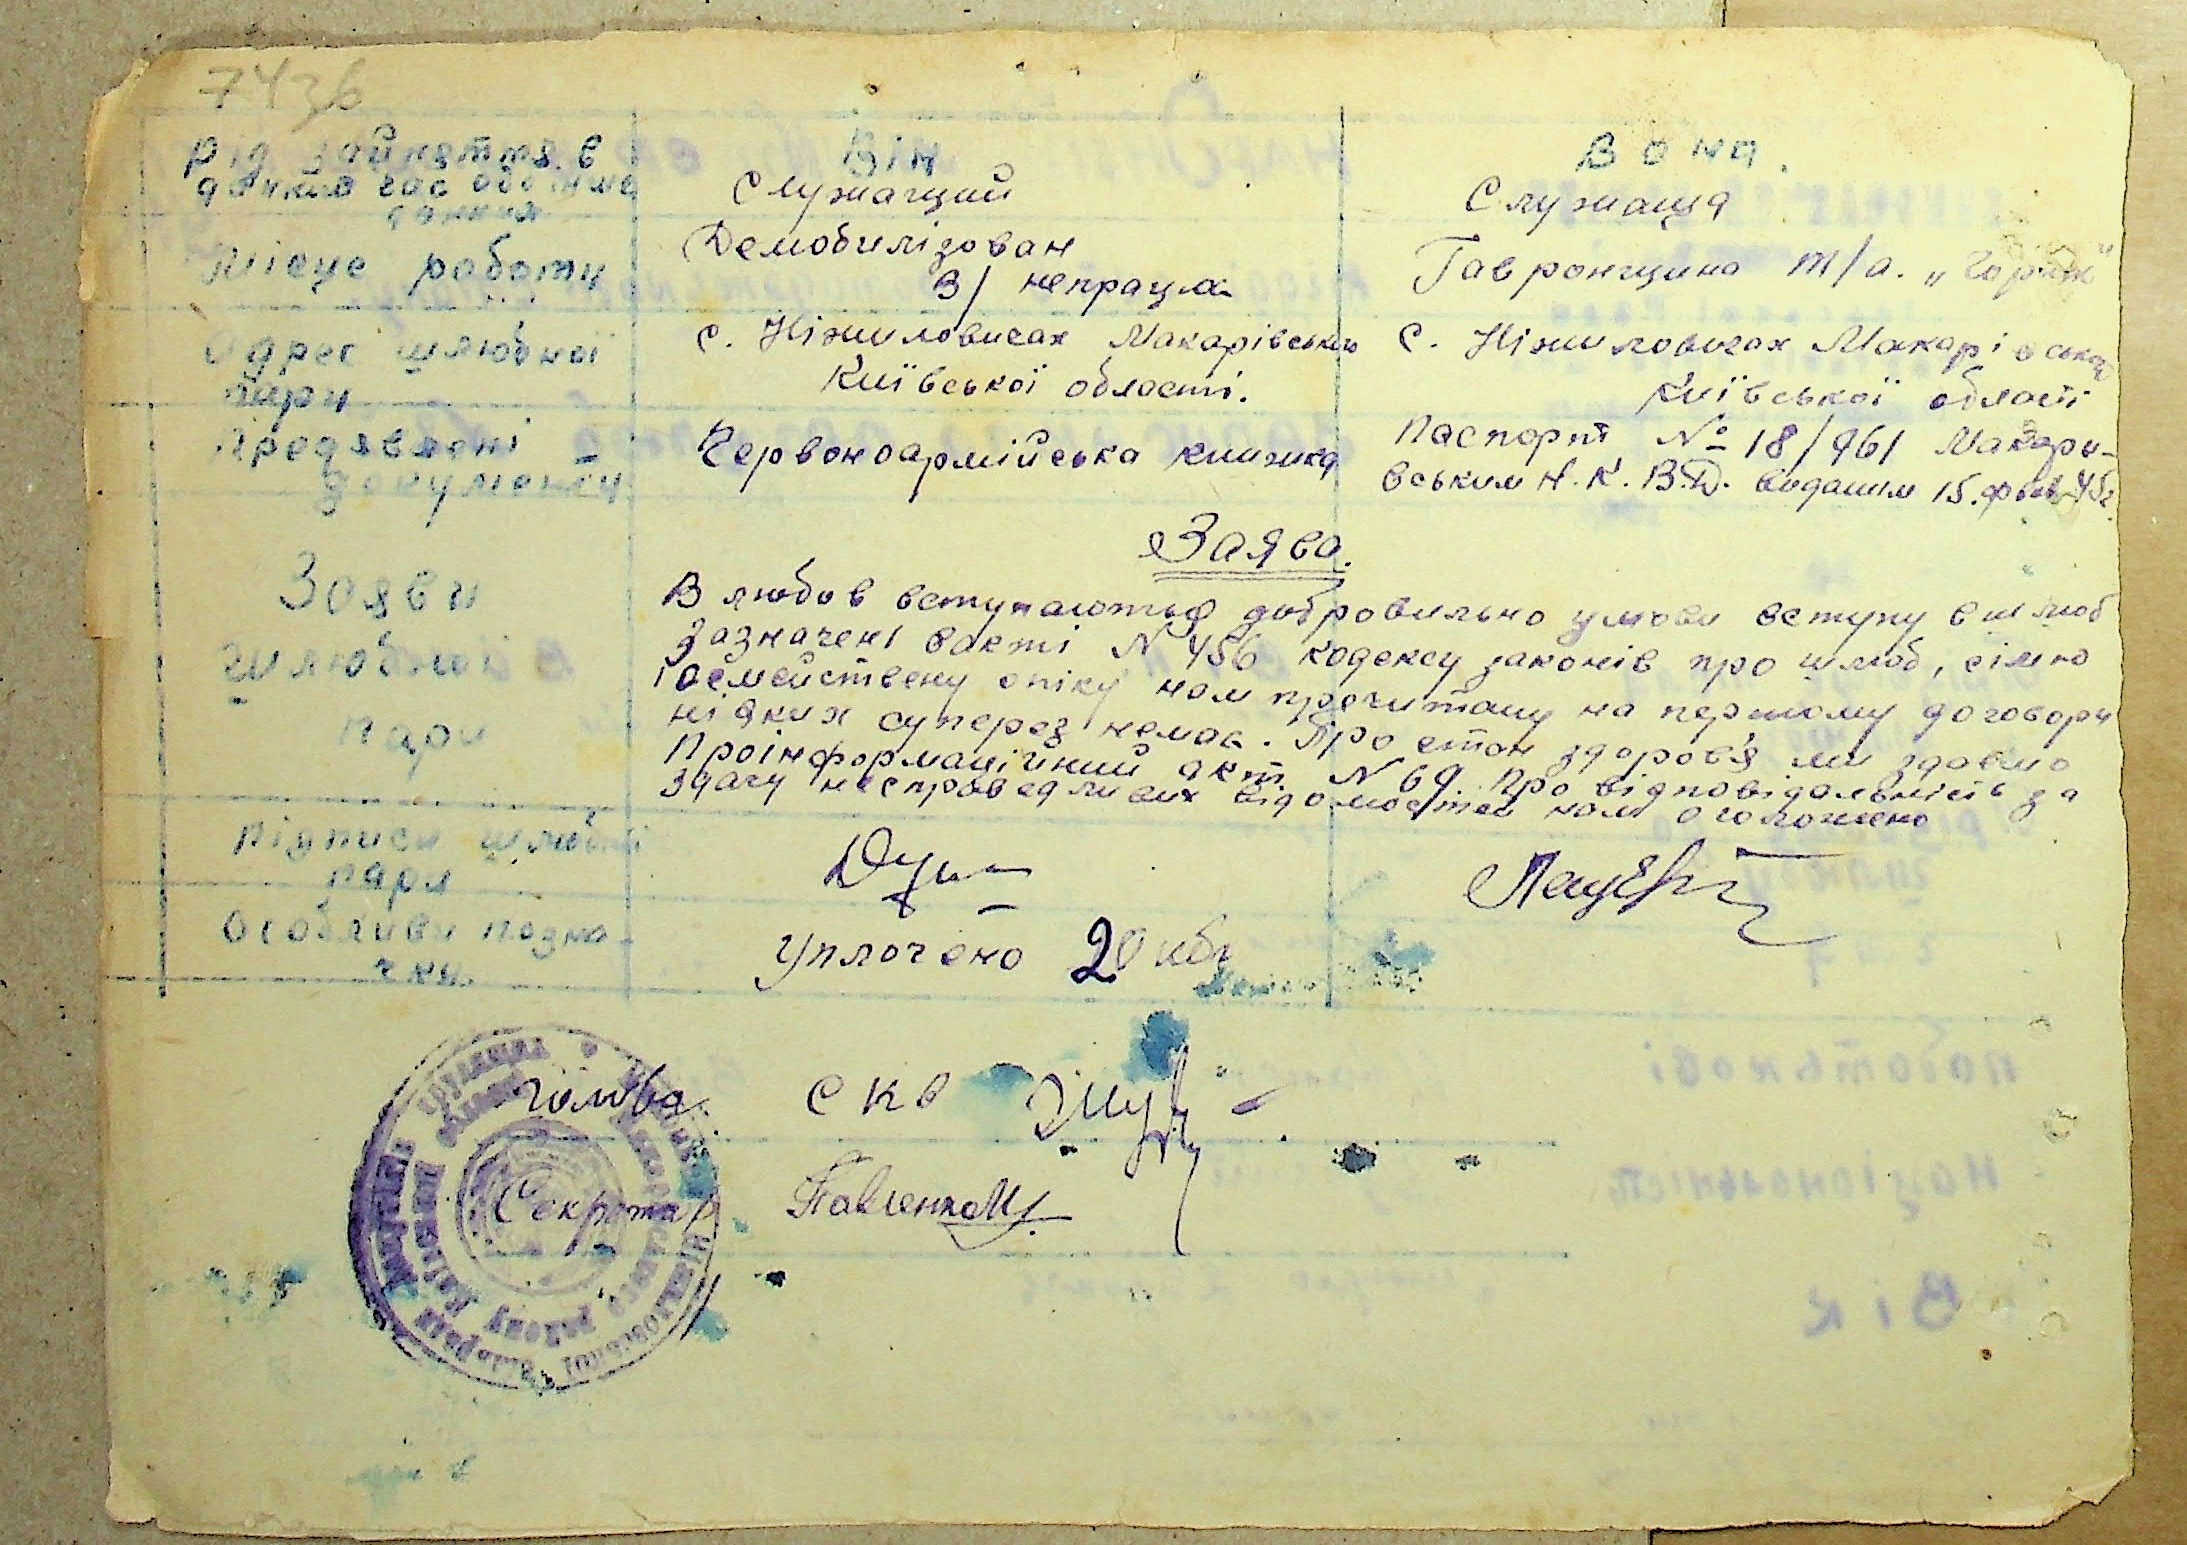 743в
Рід зайняття в
Він
Вона.
Служачций
Служаща
Місце роботи
Демобилізован
В/ непрацює
Гавронщина т/а.
Адрес шлюбної
пари
с. Ніжиловичах Макарівського
Київської області.
с. Ніжиловичах Макарівська
Київської області
Предявлені
документи
Червоноармійська книжка
Паспорт № 18/961 Макари-
вським Н.К.В.Д. виданим 15. 45г.
Заява.
Заяви
шлюбної
пари
В любов вступаються добровильно умови вступу в шлюб
Зазначені вакті N 456 кодексу законів про шлюб, сімю
і семействену опіку нам прочитану на першому договори
ніяких суперез немає. Про стан здоров'я ми здавно
Проінформаційний акт N 69 Про відповідальність за
здачу несправедливих відомостей нам оголошено
Підписи шлюбної
пари
Особливи позна-
чки.
Уплочено 20
Голова. СКВ
Секретар Павленко